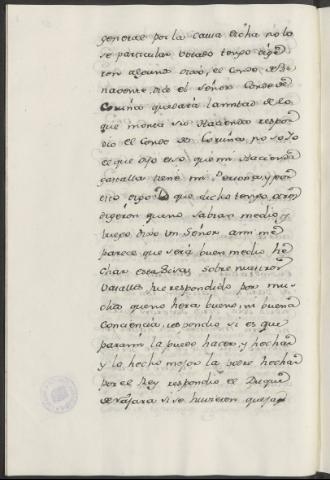 general por la causa dicha no lo
se particular botado tengo dige
ron algunos dixo, el Conde de Be
navente, dice el Señor Conde de
Coruña quedará la mitad de lo
que monta su Hacienda respon
dio el Conde de Coruña, no solo
el que dijo eso que mi Hacienda
gastalla tiene mi Persona y por
esso dixo que dicho tengo, otros
digeron que no sabian medio y
luego dixo un Señor, a mi me
parece que será buen medio he
char esta Sissa sobre nuestros
Vasallos fue respondido por mu
chos que no hera bueno, ni buena
Conciencia, respondio si es que
para mi la puedo hacer, y hechar
y lo hecho mejor la podre hechar
por el Rey respondio el Duque
de Náxara si se huvieren quejado